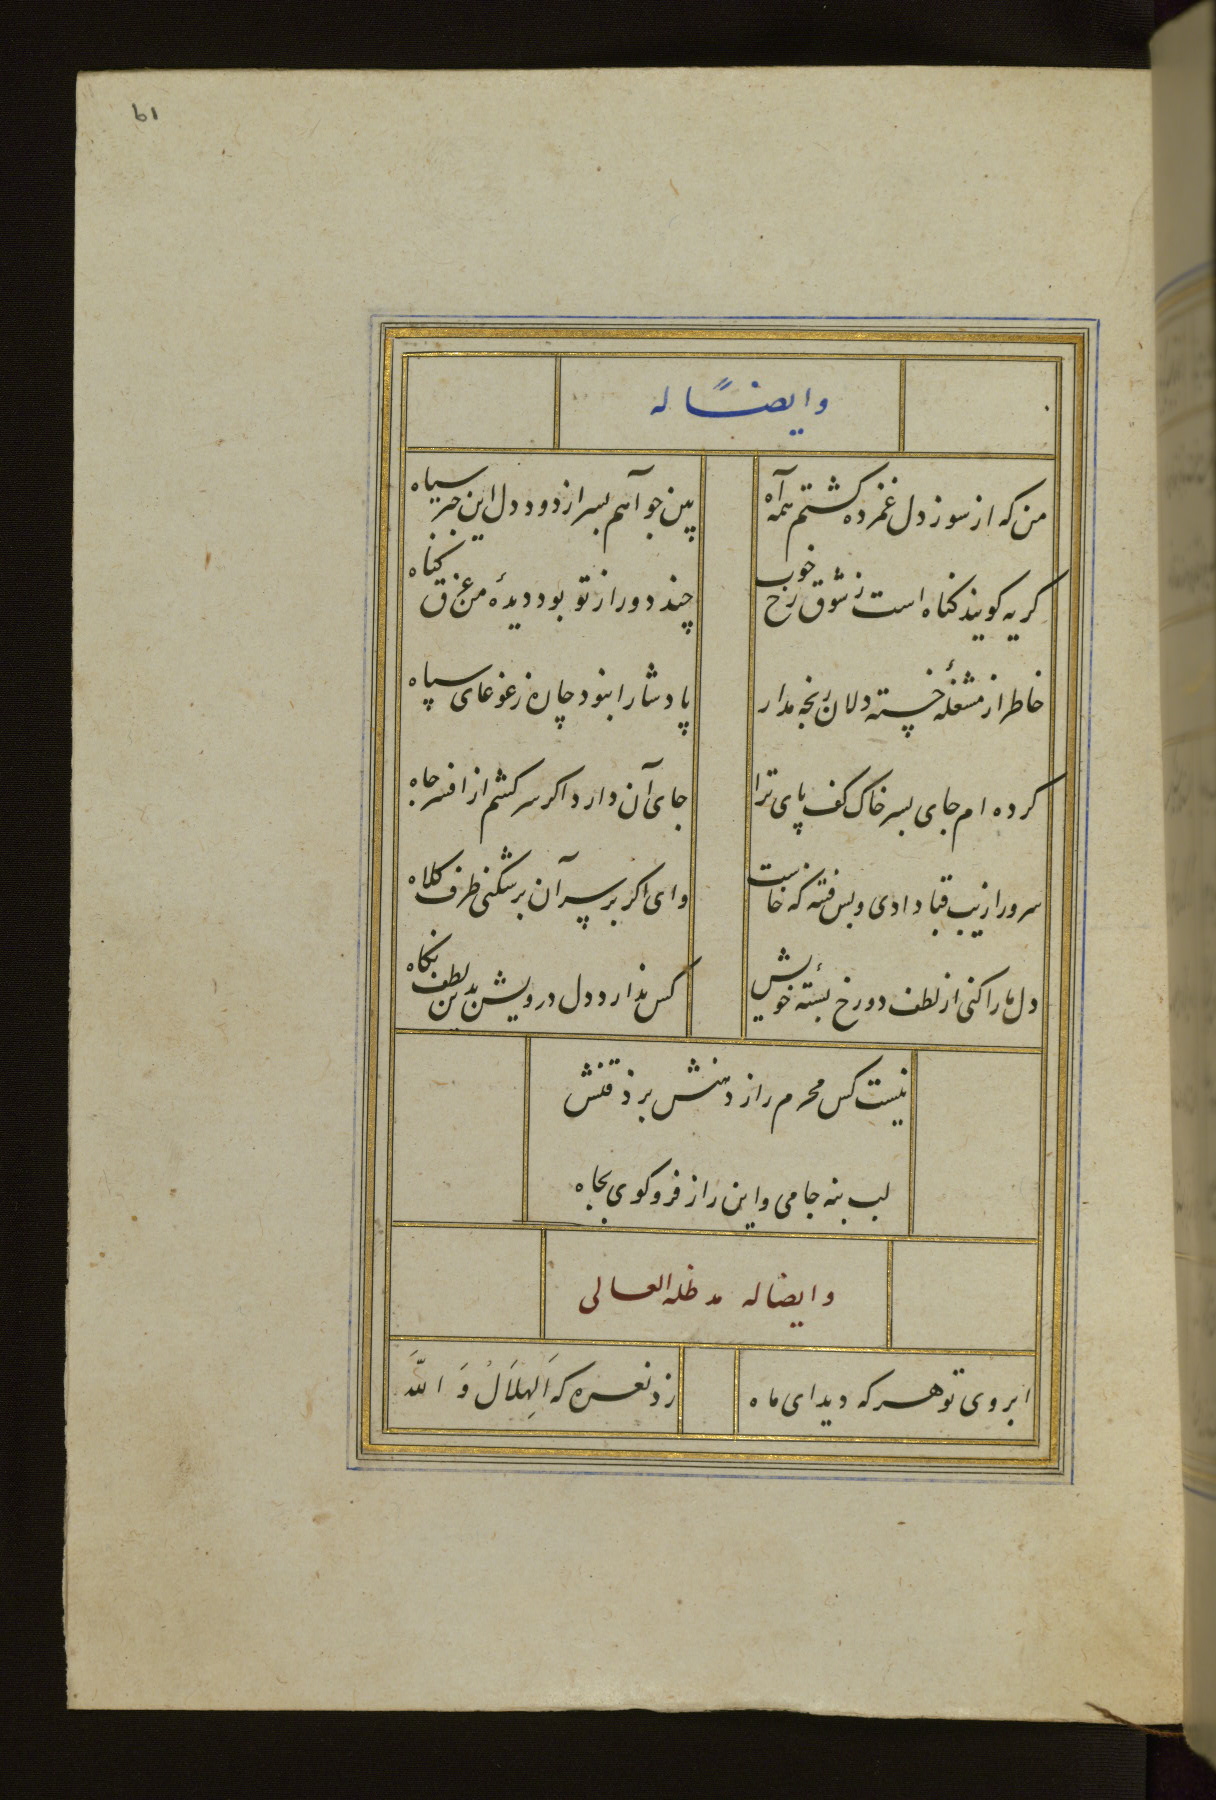 61
وایضاً له
من که از سوز دل غمزده گشتم همه آه
بین جو آهم بسر از دود دل این جبر سیاه
کریه کویند کناه است ز شوق رخ خوب
چند دور از تو بود دیدهٔ من غرق کناه
خاطر از مشغلهٔ خسته دلان رنجه مدار
پادشا را بنود چاره ز غوغای سپاه
کرده ام جای بسر خاک کف پای ترا
جای آن دارد اکر سر کشم از افسر جاه
سرو را زیب قبا دادی و بس فتنه که خاست
وای اکر بر سر آن برشکنی طرف کلاه
دل ما را کنی از لطف دو رخ بستهٔ خویش
کس ندارد دل درویش بدین لطف نکاه
نیست کس محرم راز دهنش بر ذقنش
لب بنه جامی و این راز فرو کوی بجاه
وایضا له مد ظله العالی
ابروی تو هر که دید ای ماه
زد نعره که اَلهِلاَلُ وَ اللّهَ